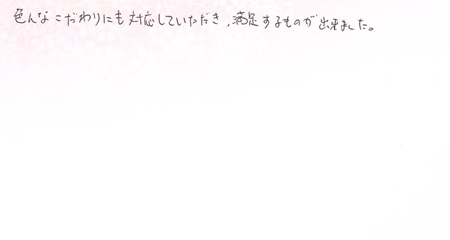 色んなこだわりにも対応していただき、満足するものが出来ました。